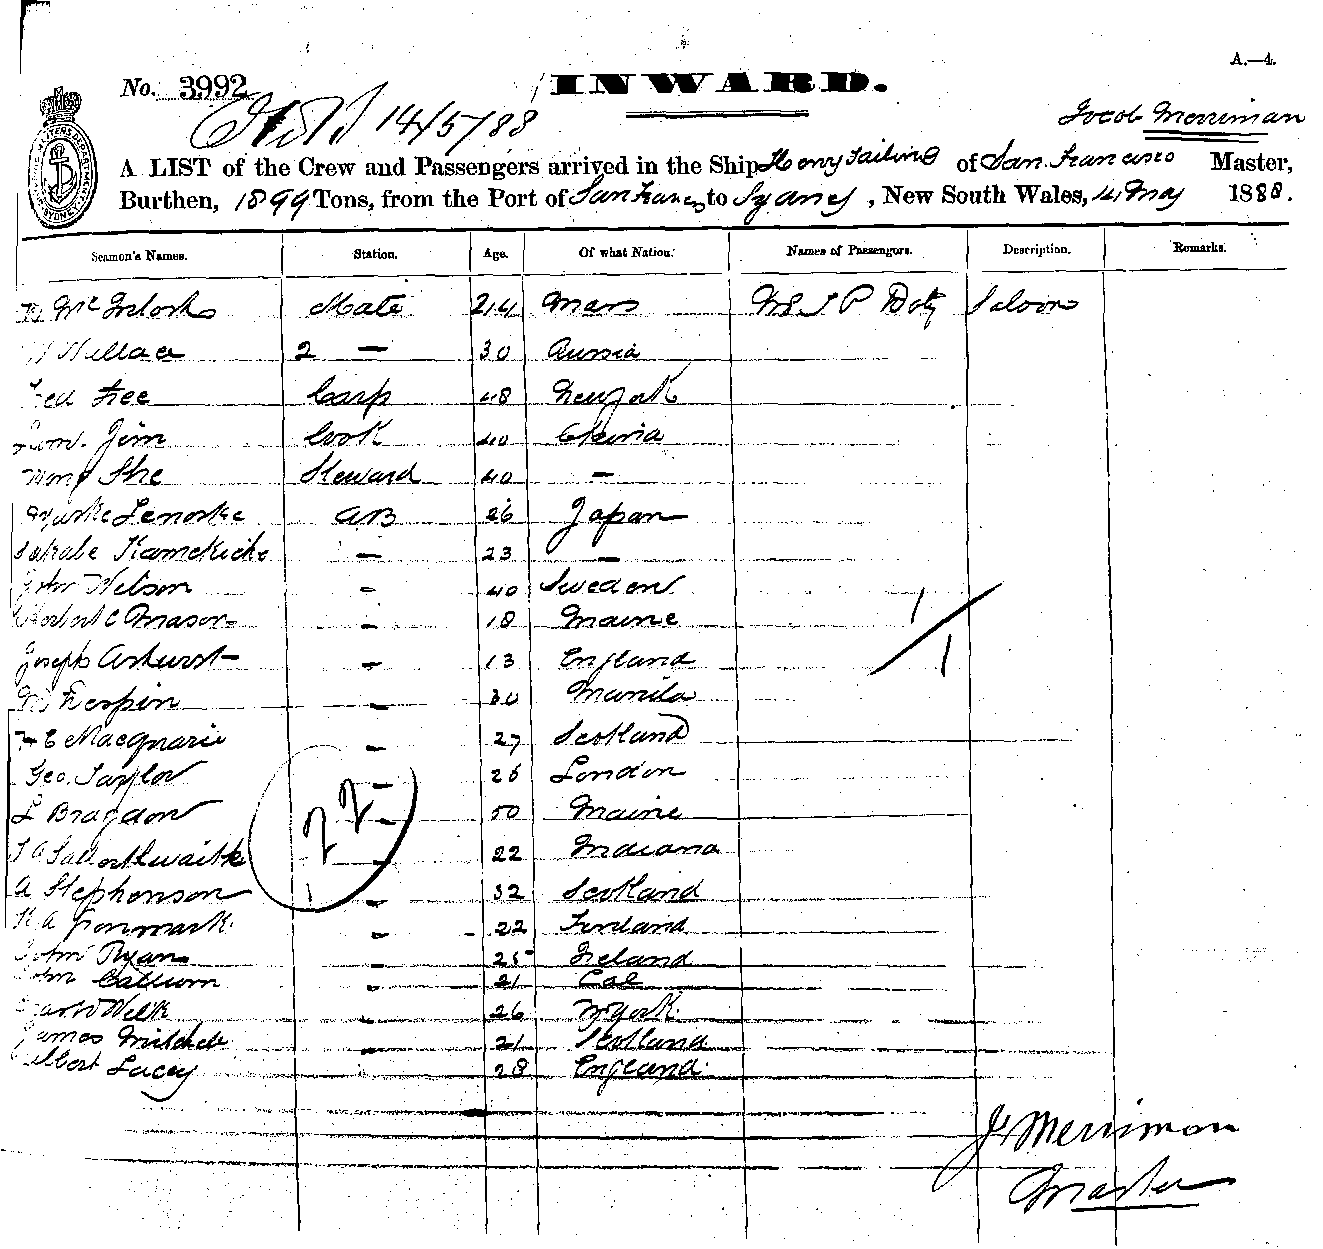 A.—4.
No. 3992
INWARD.
14/5/88
Jacob Merriman
A LIST of the Crew and Passengers arrived in the Ship Henry Failing of San Francisco Master,
Burthen, 1899 Tons, from the Port of San Franco to Sydney, New South Wales, 4 May 1888.
Seamen's Names. Station. Age. Of what Nation. Names of Passengers. Description. Remarks.
Mc Intosh Mate 24 Mass J P Doty Saloon
Wallace 2 — 30 Russia
Fee Carp 48 New York
Jim Cook 40 China
She Steward 40 —
AB 26 Japan
Kamekichi — 23 —
John Nelson — 40 Sweden
Herbert C Mason — 18 Maine
1/1
Joseph Ashurst — 13 England
— 30 Manila
Macquarie — 27 Scotland
Geo. Taylor — 26 London
L Bragdon — 50 Maine
22
Satterthwaite — 22 Indiana
A Stephenson — 32 Scotland
K A Gronmark — 22 Finland
John Ryan — 25 Ireland
John Callum — 21 Cal
— 26 N York
James Mitchell — 21 Scotland
Albert Lacey 28 England
J Merriman
Master